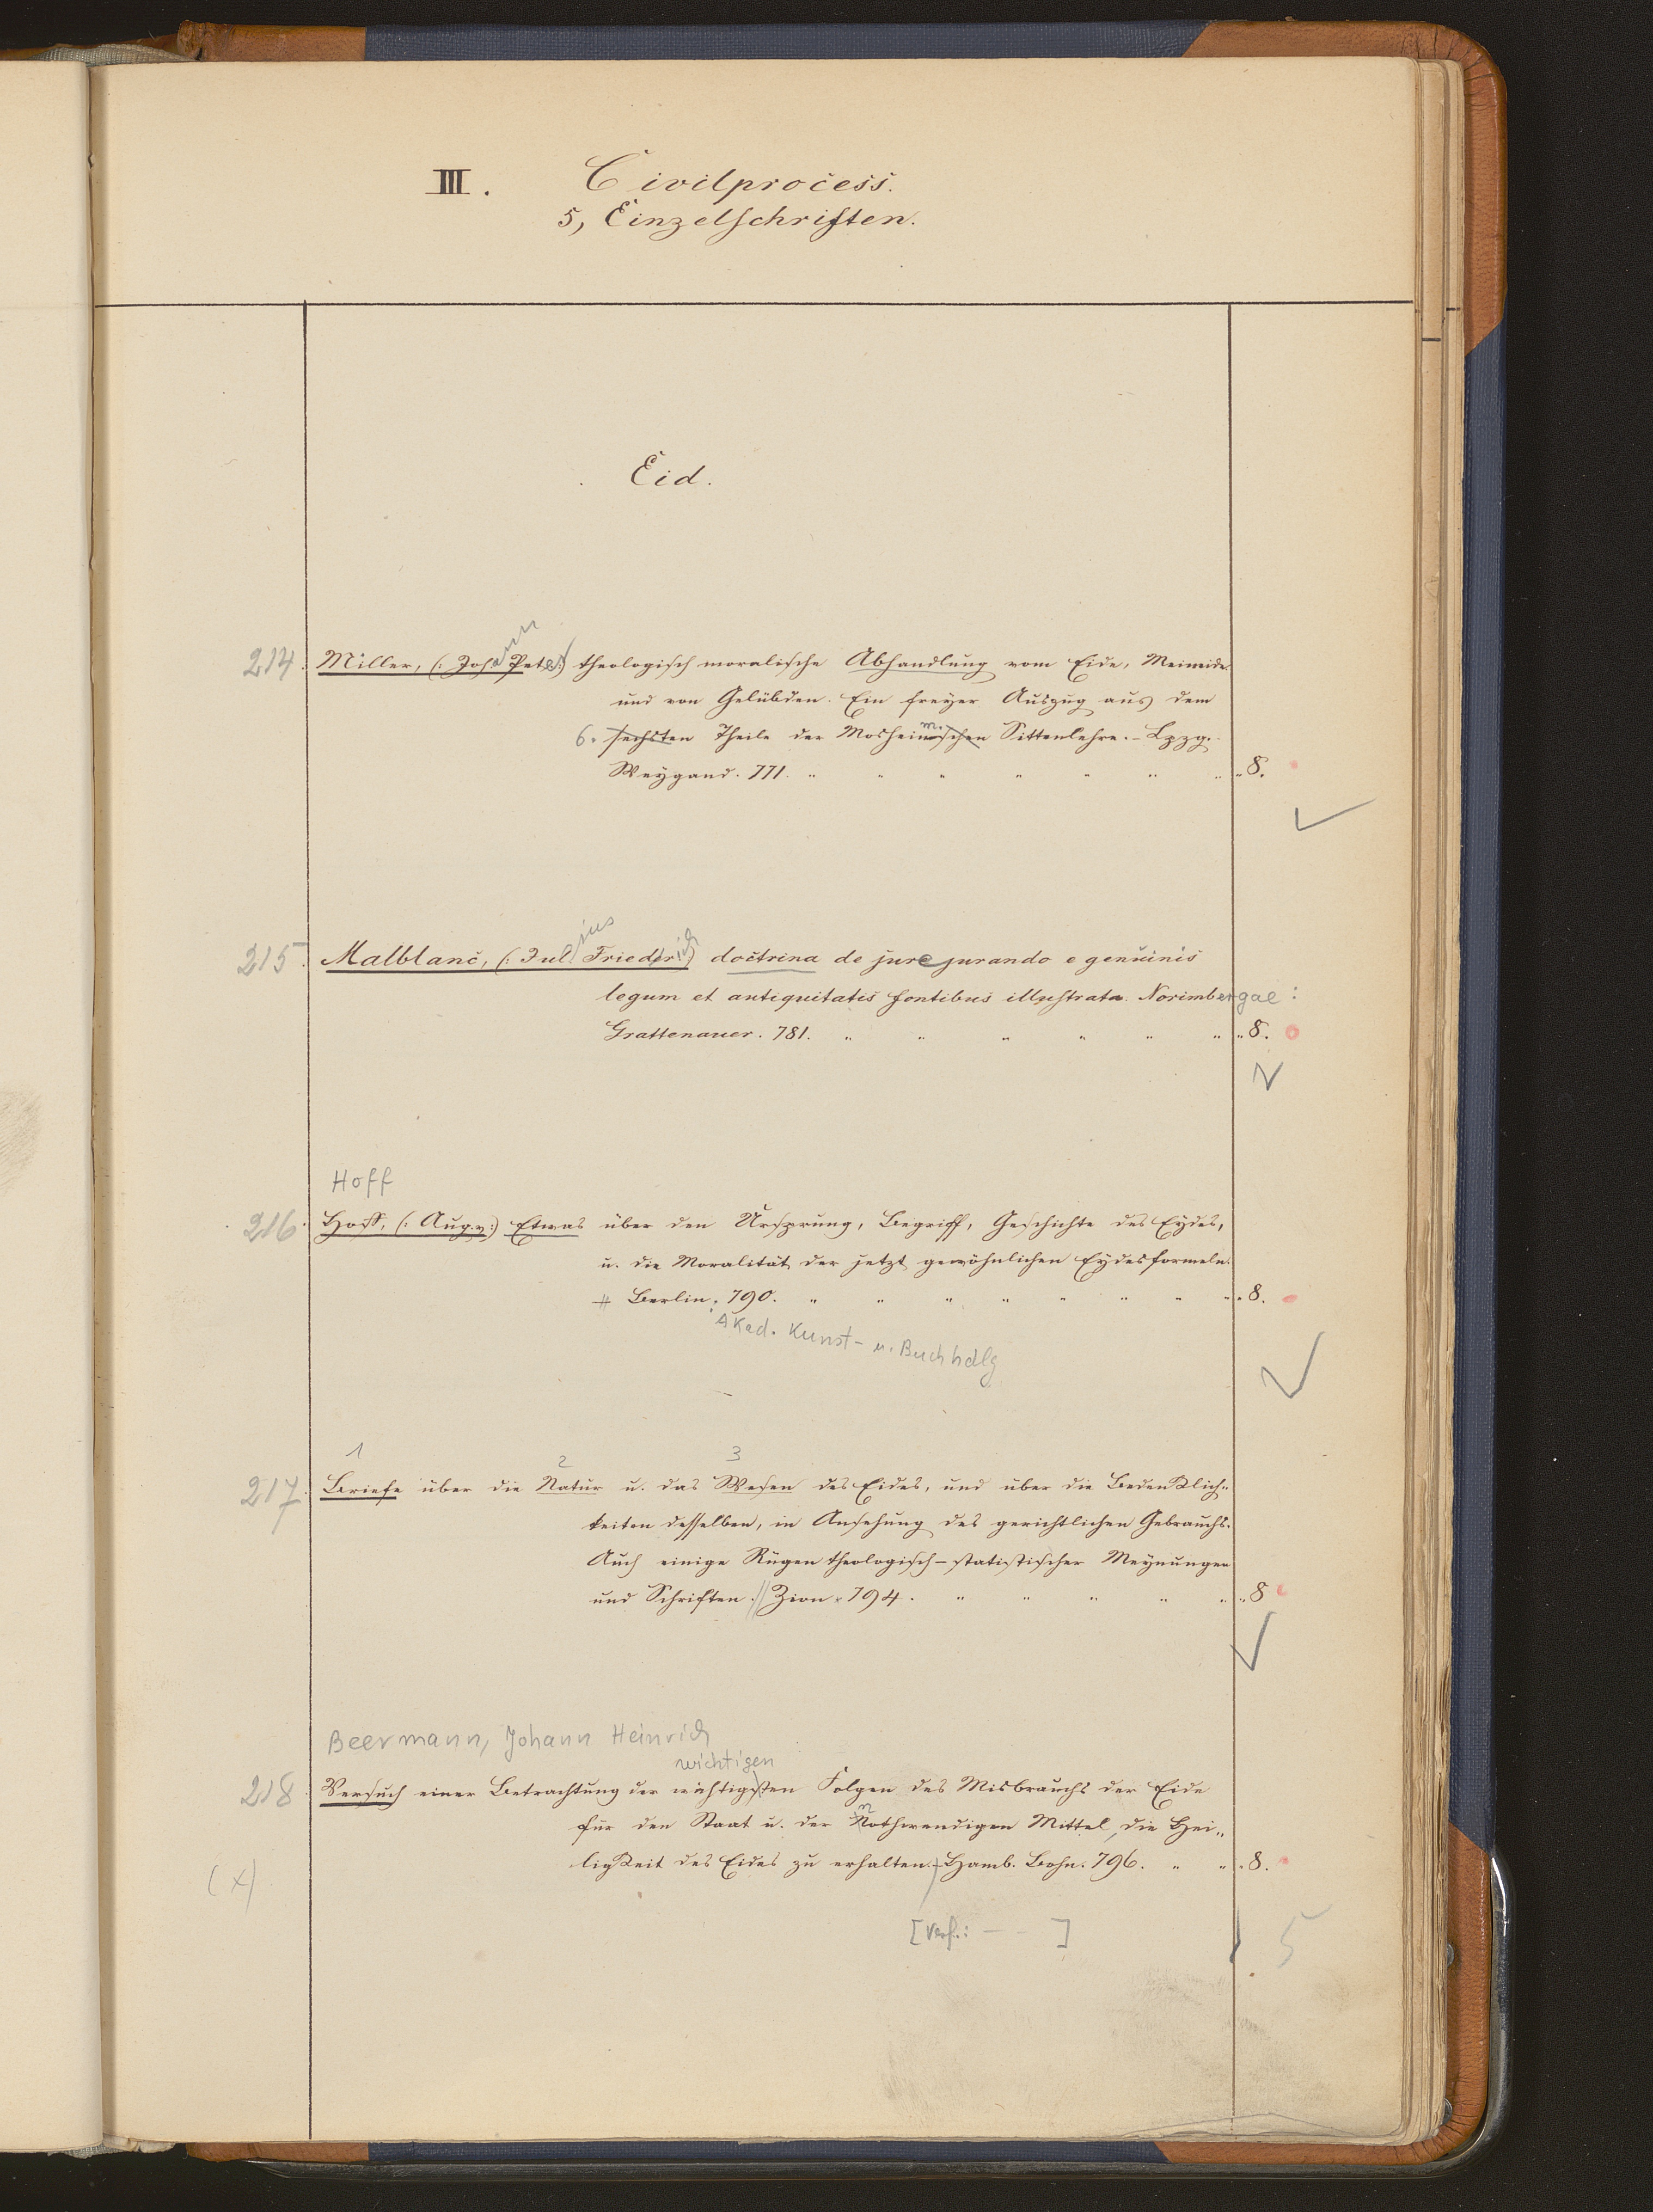 III. Civilprocess.
5, Einzelschriften.
Eid.
214. Miller, (: Johann Peter:) theologisch moralische Abhandlung vom Eide, Meineide
und von Gelübden. Ein freyer Auszug aus dem
6. sechsten Theile der Mosheim.schen Sittenlehre. - Lpzg.
Weygand. 771. " " " " " " " 8.
215. Malblanc, (: Julius Friedrich) doctrina de jure jurando e genuinis
legum et antiquitatis fontibus illustrata. Norimbergae:
Grattenauer. 781. " " " " " " " 8.
Hoff
216. Hoff, (: Aug. v:) Etwas über den Ursprung, Begriff, Geschichte des Eydes,
u. die Moralität der jetzt gewöhnlichen Eydesformeln.
Berlin, 790. " " " " " " " " 8.
Akad. Kunst- u. Buchhdlg
1 2 3
217. Briefe über die Natur u. das Wesen des Eides, und über die Bedenklich-
keiten desselben, in Ansehung des gerichtlichen Gebrauchs.
Auch einige Rügen theologisch-statistischer Meynungen
und Schriften. // Zion. 794. " " " " " " 8
Beermann, Johann Heinrich
wichtigen
218 Versuch einer Betrachtung der wichtigsten Folgen des Misbrauchs der Eide
für den Staat u. der Nothwendigen Mittel, die Hei-
ligkeit des Eides zu erhalten. - Hamb. Bohn. 796. " " " 8.
(x)
[Verf.: - - ]
5